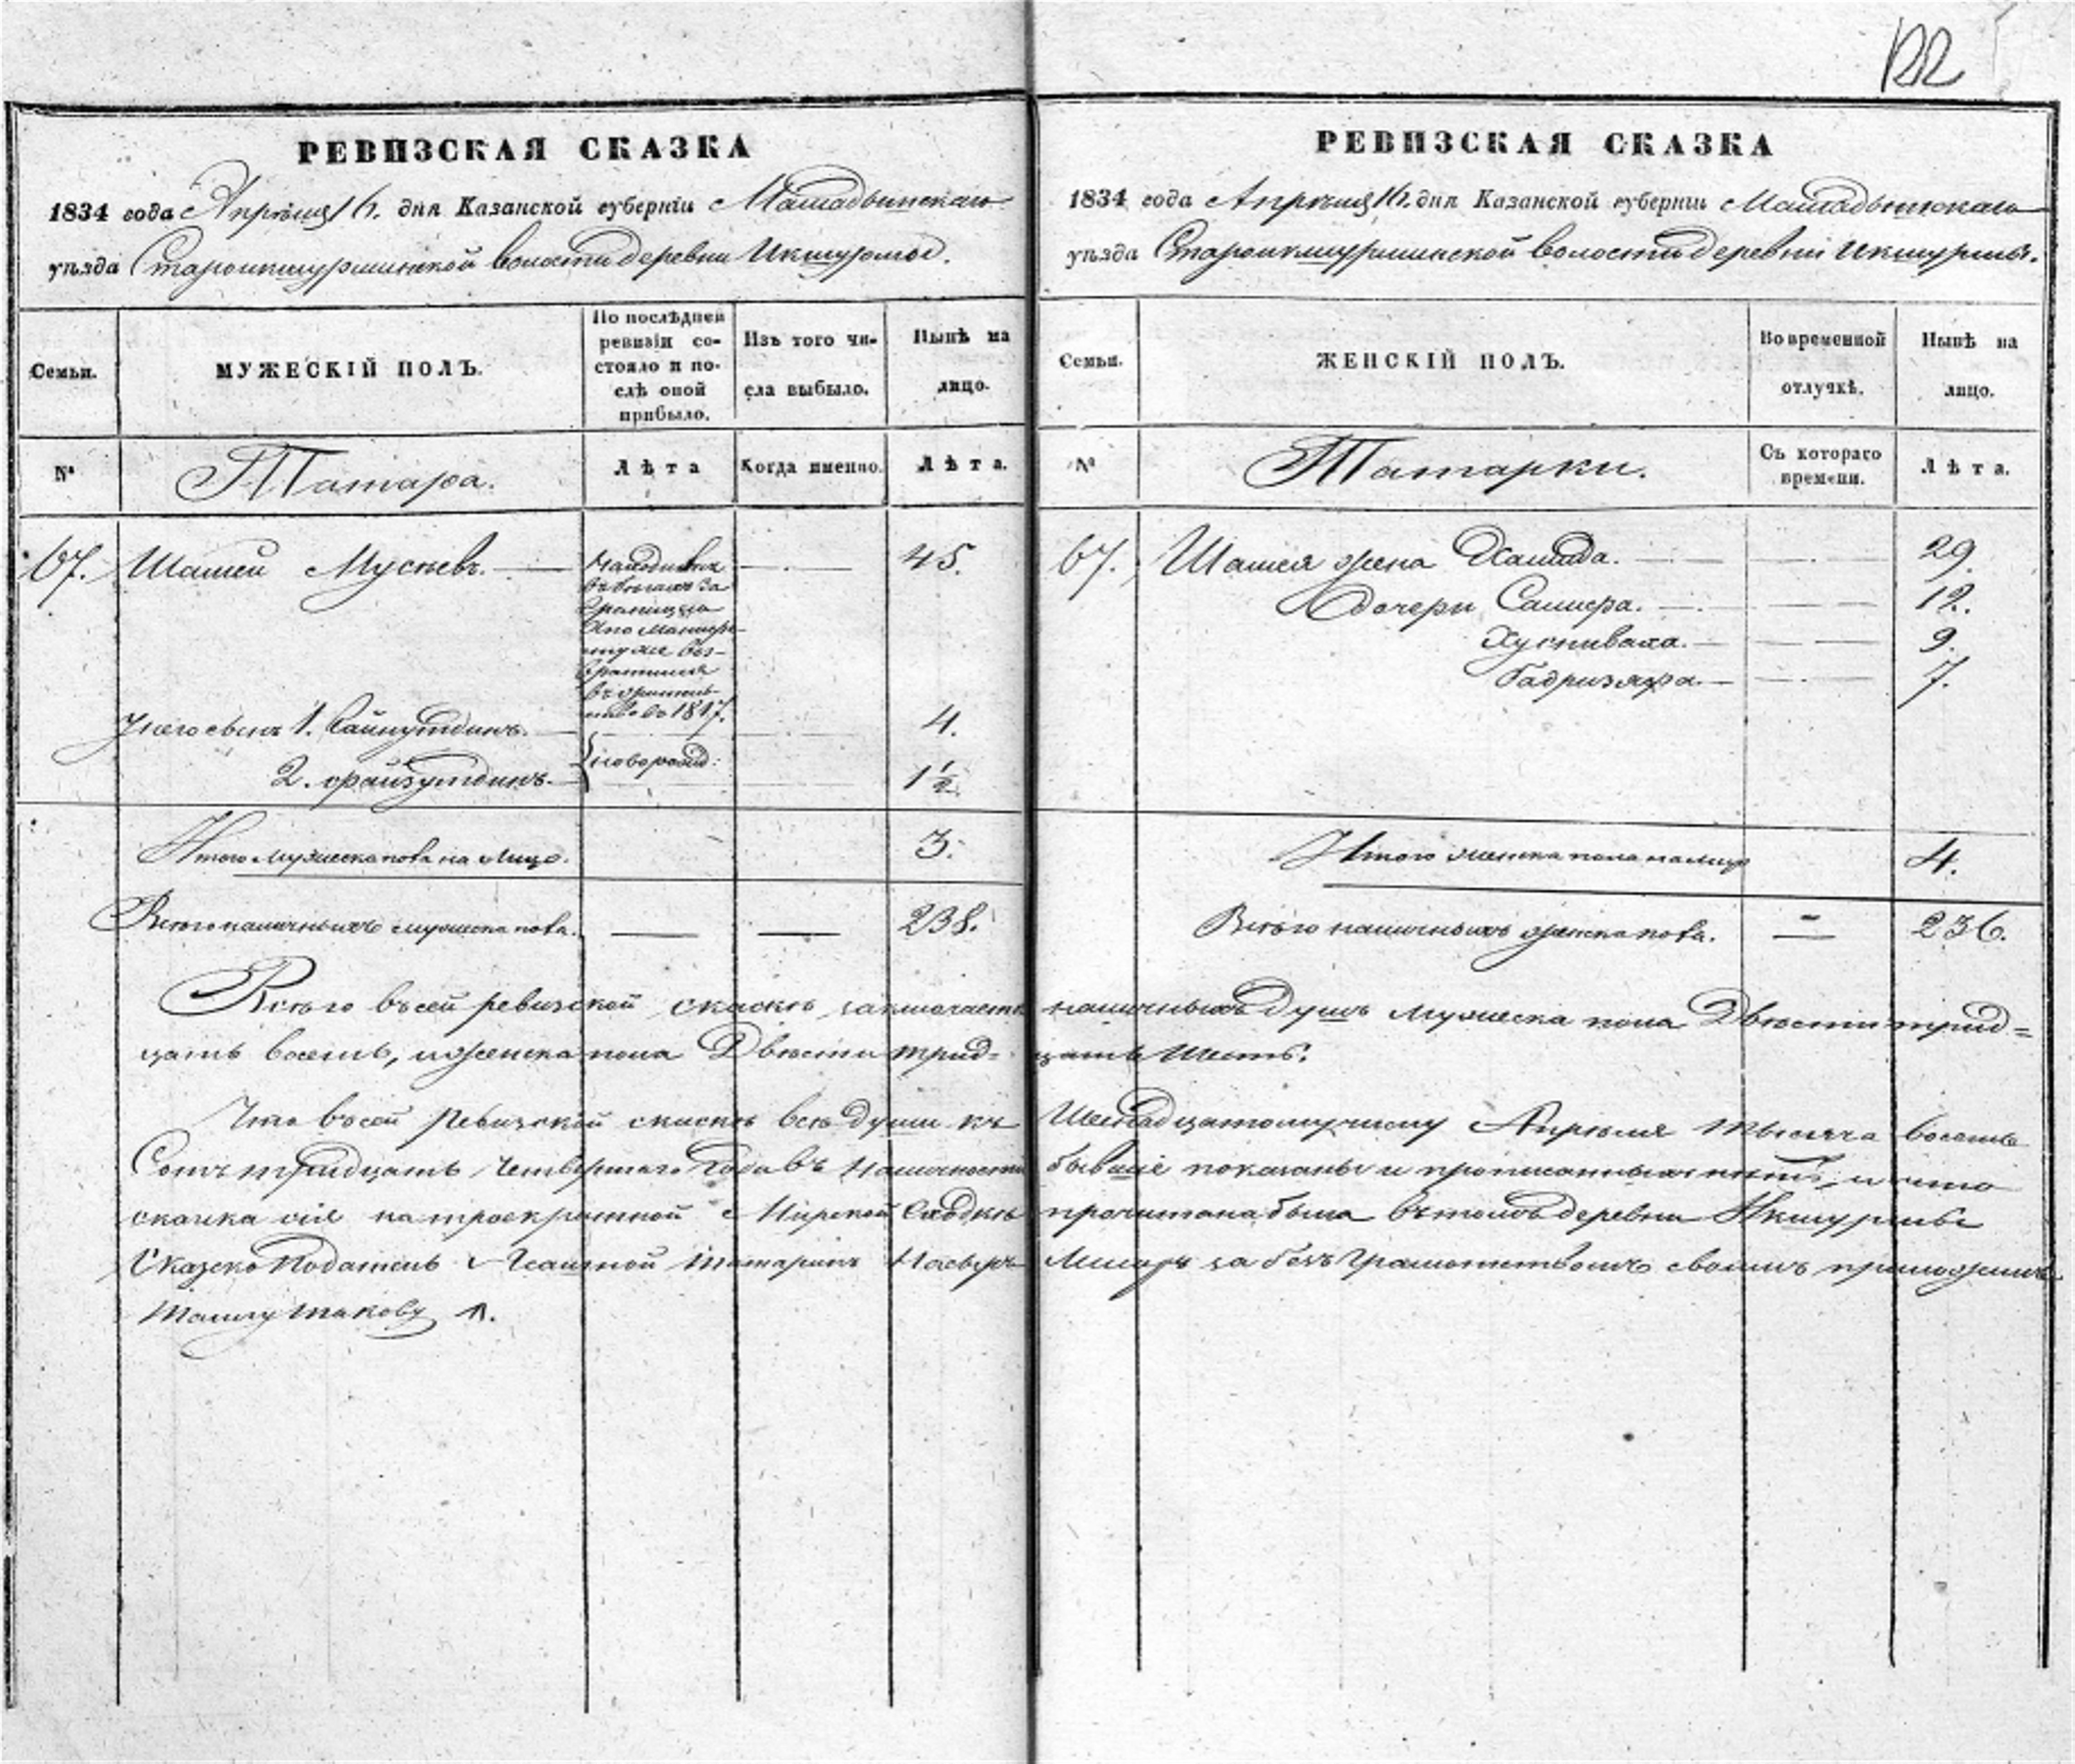 122
РЕВИЗСКАЯ СКАЗКА
1834 года Апрѣля 16. дня Казанской губерніи Мамадышскаго
уѣзда Староикшурминской волости деревни Икшурмы.
Семьи.
МУЖЕСКІЙ ПОЛЪ.
По послѣдней
ревизіи со-
стояло и по-
слѣ оной
прибыло.
Изъ того чи-
сла выбыло.
Нынѣ на
лицо.
№
Татара.
Лѣта
Когда именно.
Лѣта.
67. Шамей Мусѣевъ. 45.
находился
въ бѣгахъ за
границею
по Манифе-
сту же воз-
вратился
въ житель-
ство въ 1817.
У него сынъ 1. Сайнутдинъ. 4.
новорожд:
2. Файзутдинъ. 1½.
Итого мужеска пола на лицо. 3.
Всего наличныхъ мужеска пола. 238.
РЕВИЗСКАЯ СКАЗКА
1834 года Апрѣля 16. дня Казанской губерніи Мамадышскаго
уѣзда Староикшурминской волости деревни Икшурмы.
Семьи.
ЖЕНСКІЙ ПОЛЪ.
Во временной
отлучкѣ.
Нынѣ на
лицо.
№
Татарки.
Съ котораго
времени.
Лѣта.
67. Шамея жена Хамида. 29.
Дочери Самира. 12.
Хуснивала. 9.
Бадризяфа. 7.
Итого женска пола на лицо 4.
Всего наличныхъ женска пола. 236.
Всего въ сей ревизской скаскѣ заключается наличныхъ душъ мужеска пола Двѣсти трид=
цать восемь, и женска пола Двѣсти трид= цать шесть.
Что въ сей Ревизской скаскѣ всѣ души къ Шестнадцатому числу Апрѣля тысяча восемь
Сотъ тридцать Четвертаго Года въ Наличности бывшіе показаны и прописанныхъ нѣтъ, и что
скаска сія на троекратной Мирской Сходкѣ прочитана была въ томъ деревни Икшурмы
Сказко Податель Ясашной татаринъ за безъ Грамотствомъ своимъ приложилъ
Тамгу такову